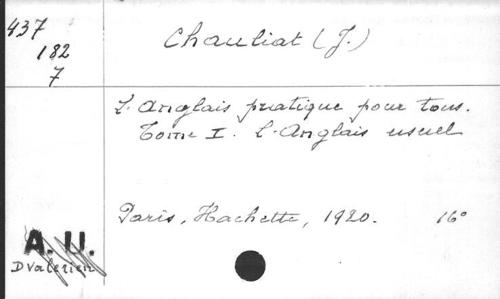 437
182
7
Chauliat (J.)
L'Anglais pratique pour tous.
Tome I. L'Anglais usuel
Paris, Hachette, 1920. 16°
A. U.
D Valerien